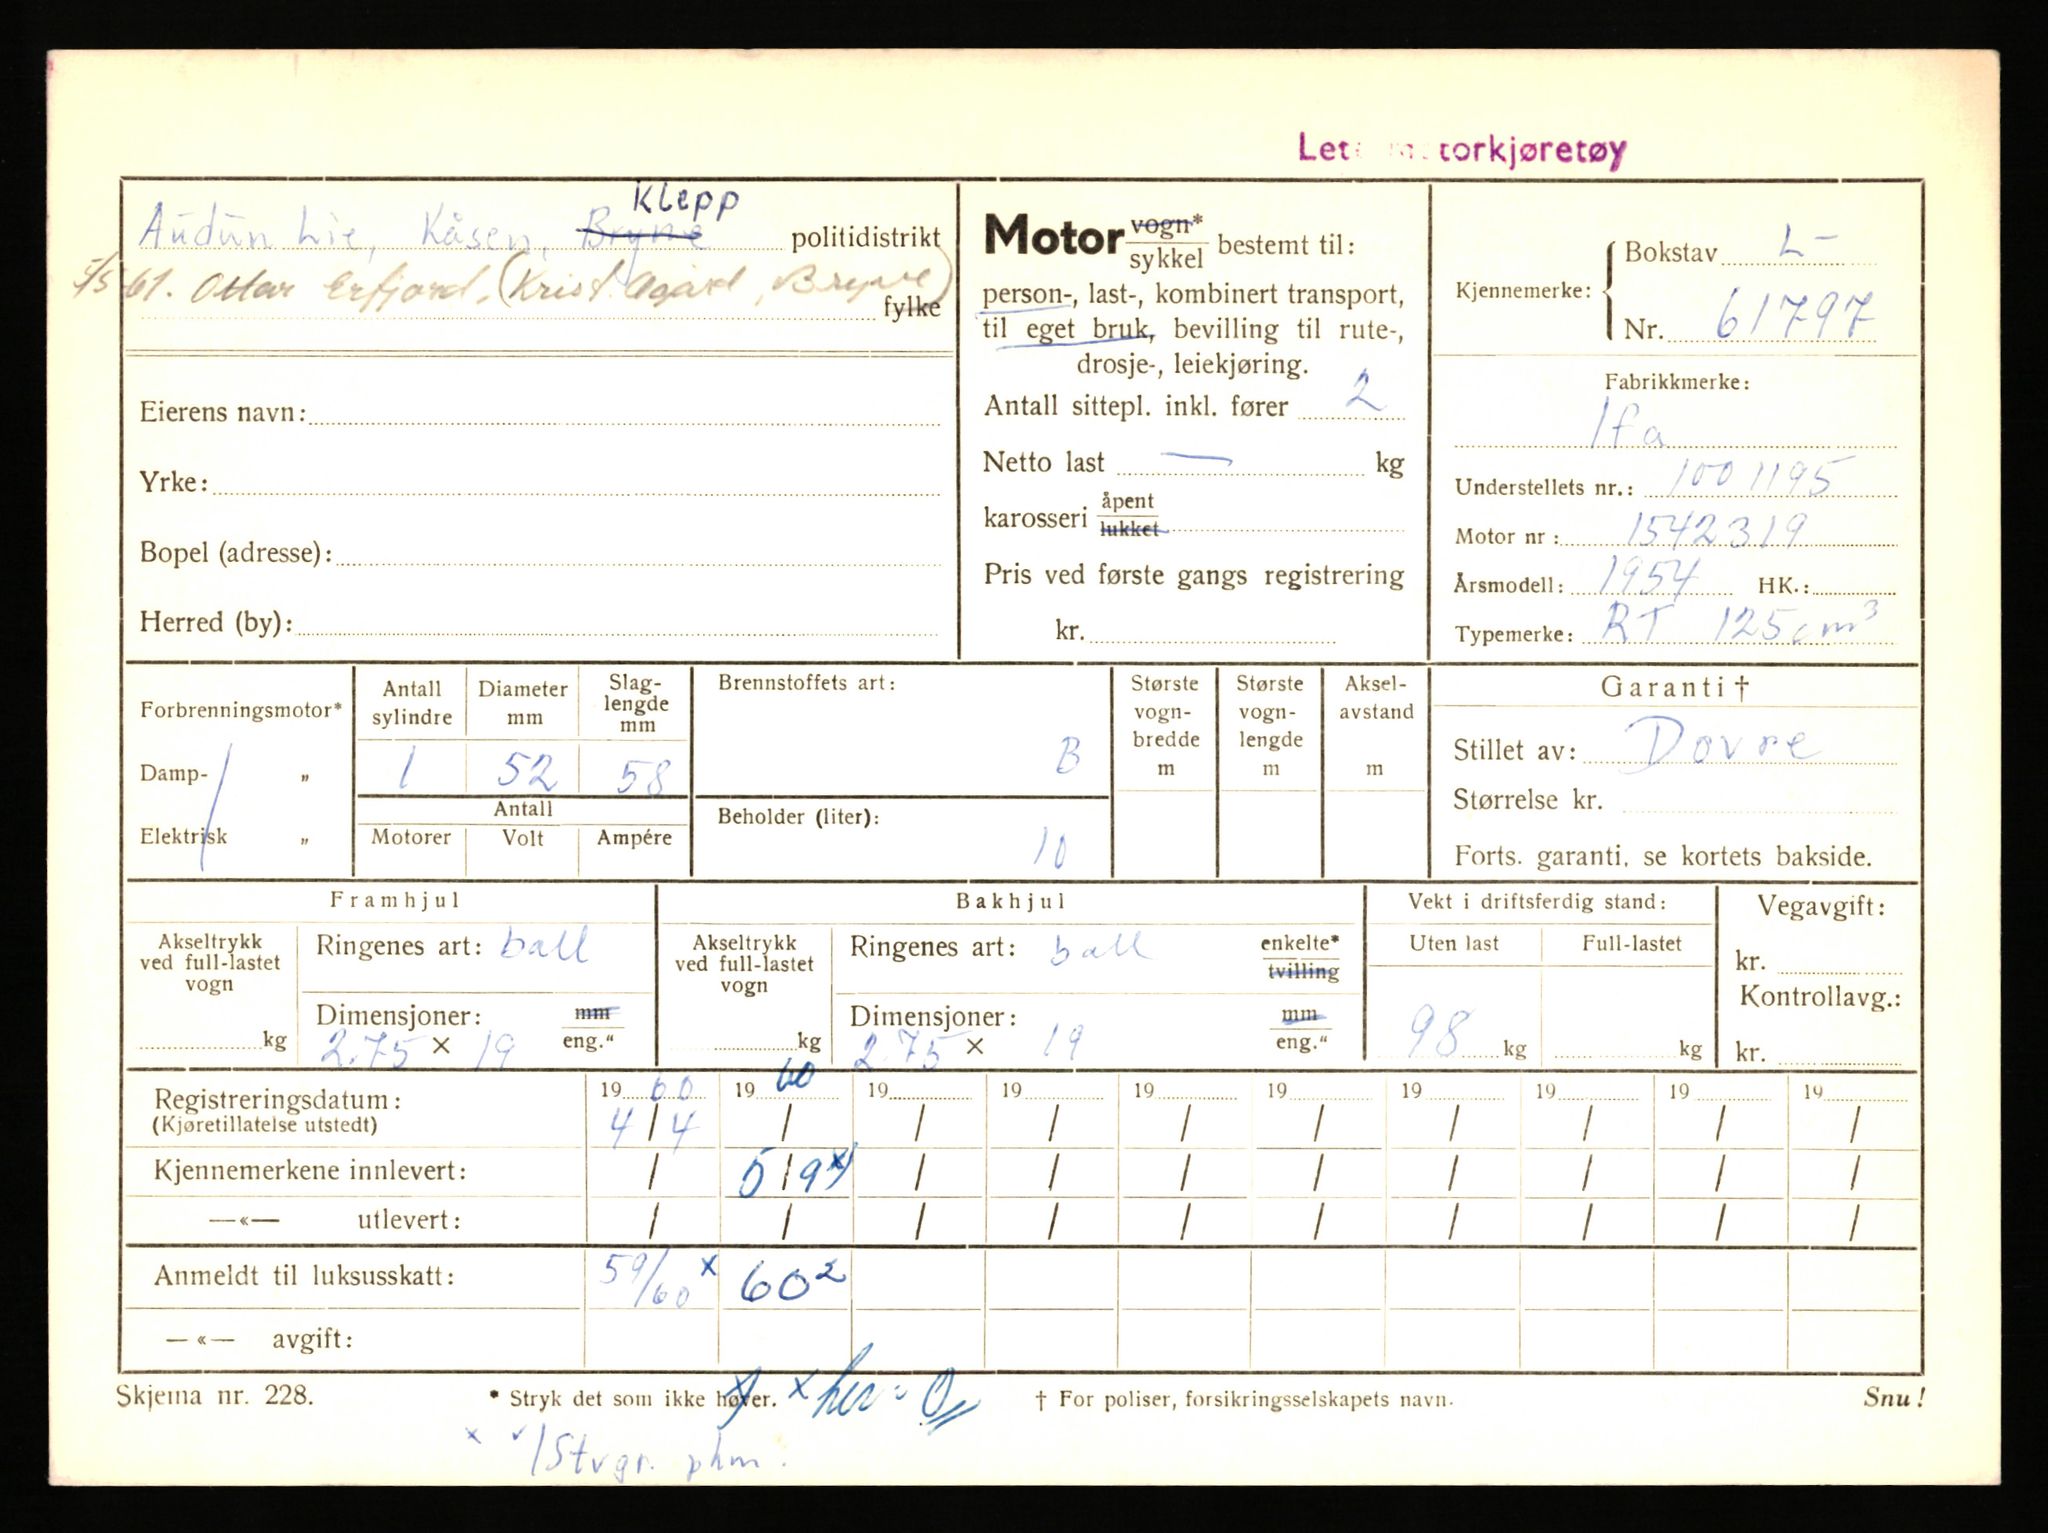 Let torkjøretøy
Klepp
Audun Lie, Kåsen, Bryne politidistrikt
5/5 61. Ottar Erfjord, (Krist. Bryne)
fylke
Eierens navn:
Yrke:
Bopel (adresse):
Herred (by):
Motor vogn*
sykkel bestemt til:
person-, last-, kombinert transport,
til eget bruk, bevilling til rute-,
drosje-, leiekjøring.
Antall sittepl. inkl. fører 2
Netto last — kg
karosseri åpent
lukket
Pris ved første gangs registrering
kr.
Kjennemerke: Bokstav L-
Nr. 61797
Fabrikkmerke:
Ifa
Understellets nr.: 1001195
Motor nr : 1542319
Årsmodell: 1954 HK.:
Typemerke: RT 125 cm³
Forbrenningsmotor*
Damp- „
Elektrisk „
Antall sylindre Diameter mm Slag-lengde mm
1 52 58
Antall
Motorer Volt Ampére
Brennstoffets art:
B
Beholder (liter):
10
Største vogn-bredde m
Største vogn-lengde m
Aksel-avstand m
Garanti †
Stillet av: Dovre
Størrelse kr.
Forts. garanti, se kortets bakside.
Framhjul
Akseltrykk
ved full-lastet
vogn
kg
Ringenes art: ball
Dimensjoner: mm
2.75 × 19 eng."
Bakhjul
Akseltrykk
ved full-lastet
vogn
kg
Ringenes art: ball enkelte*
tvilling
Dimensjoner: mm
2.75 × 19 eng."
Vekt i driftsferdig stand:
Uten last Full-lastet
98 kg kg
Vegavgift:
kr.
Kontrollavg.:
kr.
19 60 19 60 19 19 19 19 19 19 19 19
Registreringsdatum: 4/4 / / / / / / / / /
(Kjøretillatelse utstedt)
Kjennemerkene innlevert: / 5/9 x) / / / / / / / /
—«— utlevert: / / / / / / / / / /
Anmeldt til luksusskatt: 59/60 x 60²
—«— avgift:
Skjema nr. 228. * Stryk det som ikke høver. x her = 0 † For poliser, forsikringsselskapets navn. Snu!
x /Stvgn. phm.